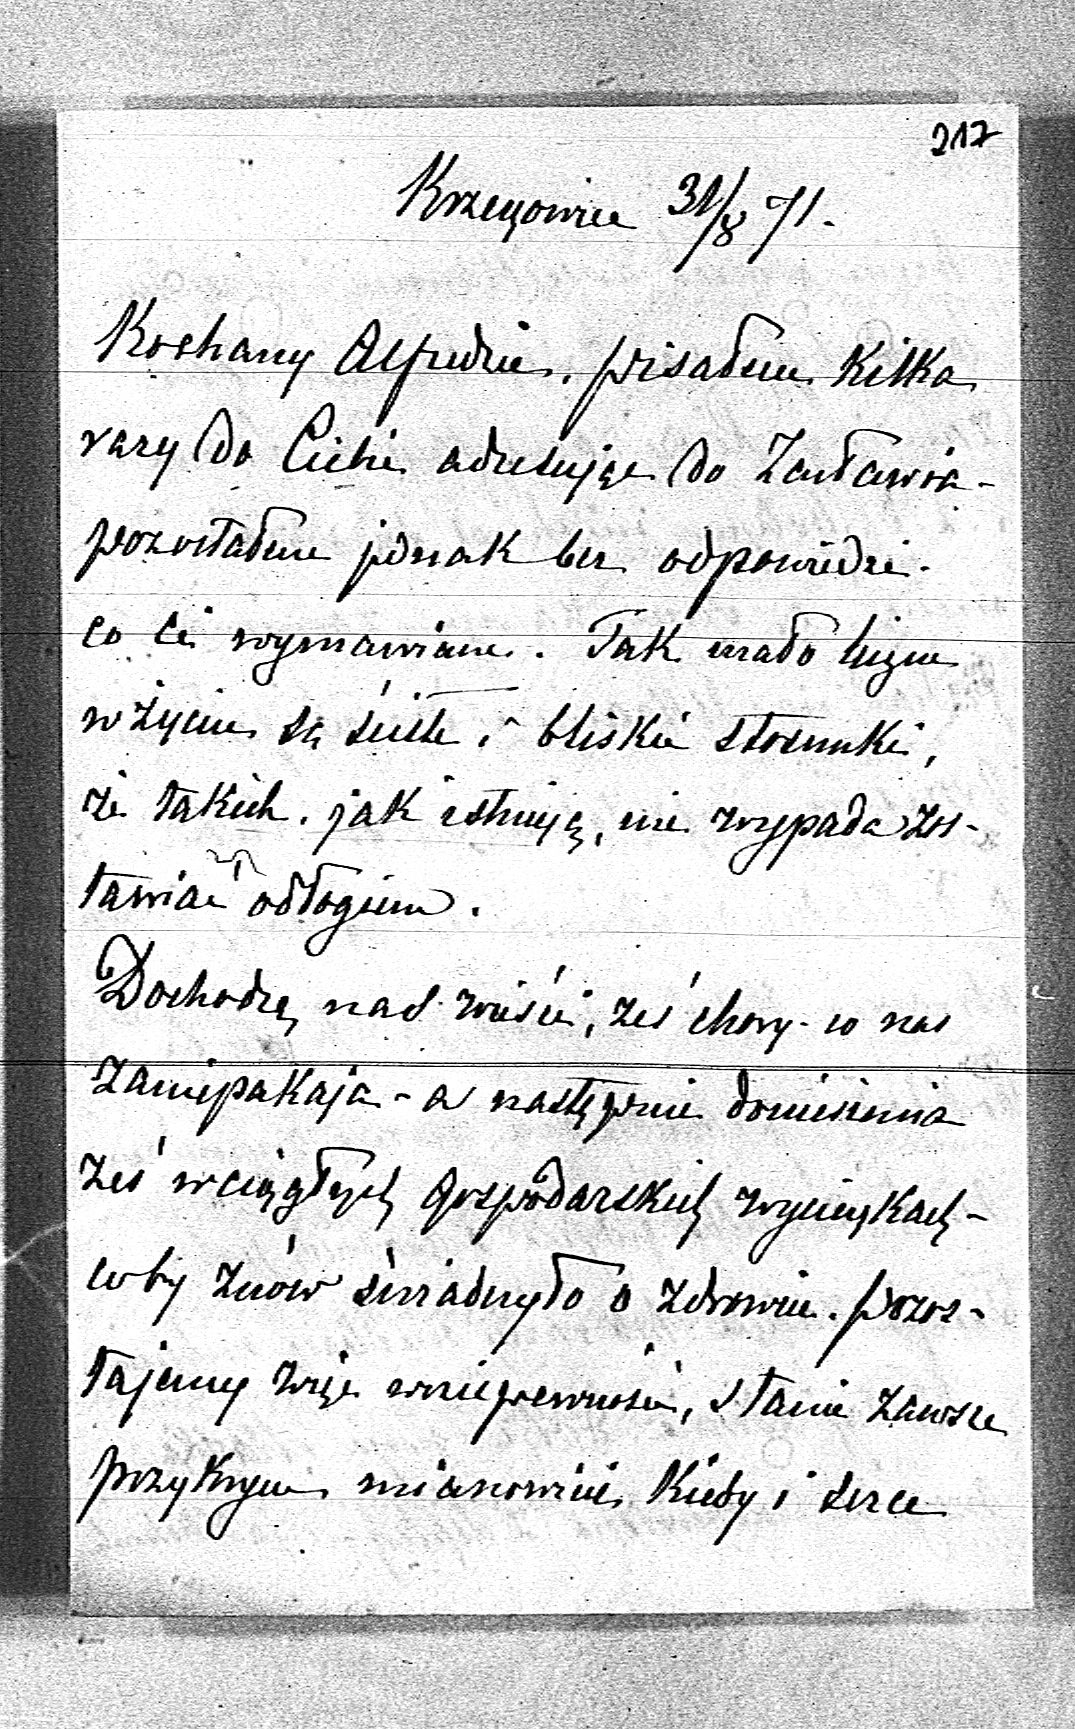 217
Krzeszowice 31/8 71.
Kochany Alfredzie. pisałem kilka
razy do Ciebie adresując do Zasławia -
pozostałem jednak bez odpowiedzi.
co Ci wymawiam. Tak mało
w życiu są ścisłe i bliskie stosunki,
że takich. jak istnieją, nie wypada zos-
tawiać odłogiem.
Dochodzą nas wieści, żeś chory - co nas
zaniepakaja - a następnie doniesienia
żeś w ciągłych gospodarskich wycieczkach -
coby znów świadczyło o zdrowiu. pozos-
tajemy więc w niepewności, stanie zawsze
przykrym mianowicie kiedy i serce